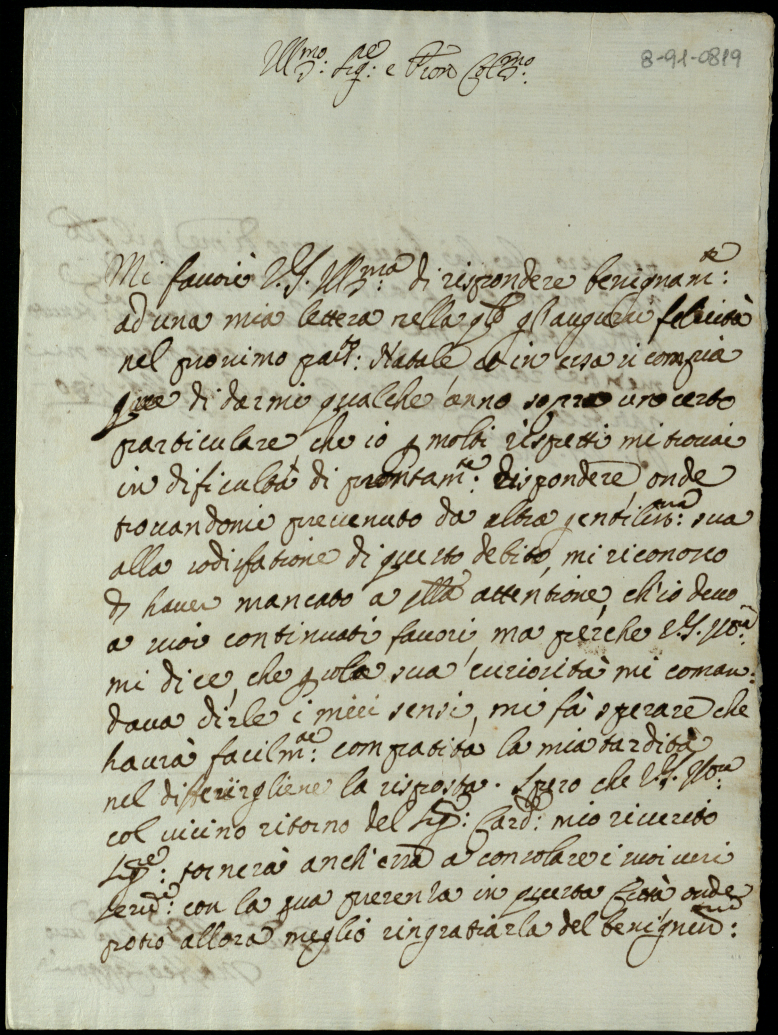 Ill.mo Sig.re e Pron Col.mo
8-91-0819
Mi favorì V.S. Ill.ma di rispondere benignam.te
ad una mia lettera nella q.le gl'augurai felicità
nel prossimo pas.to Natale et in essa si compia
que di darmi qualche cenno sopra un certo
particulare, che io p molti rispetti mi trovai
in dificultà di prontam.te rispondere, onde
trovandomi prevenuto da altra gentiliss.ma sua
alla sodisfatione di questo debito, mi riconosco
d'haver mancato a q.lla attentione, ch'io devo
a suoi continuati favori, ma perche V.S. Ill.ma
mi dice, che p sola sua curiosità mi coman-
dava dirle i miei sensi, mi fà sperare che
havrà facilm.te compatita la mia tardità
nel differirgliene la risposta. Spero che V.S. Ill.ma
col vicino ritorno del Sig.r Card.le mio riverito
Sig.re tornerà anch'essa a consolare i suoi veri
serv.ri con la sua presenza in questa Città onde
potrò allora meglio ringratiarla del benigniss.mo